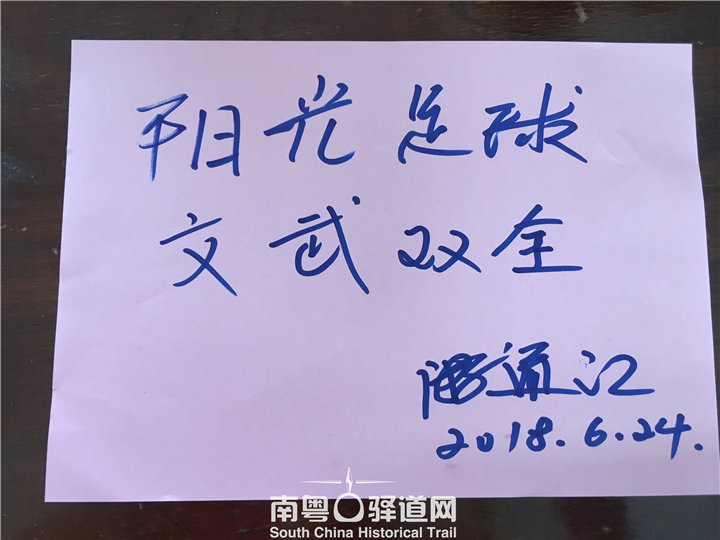 阳光足球
文武双全
通江
2018.6.24.
南粤古驿道网
South China Historical Trail